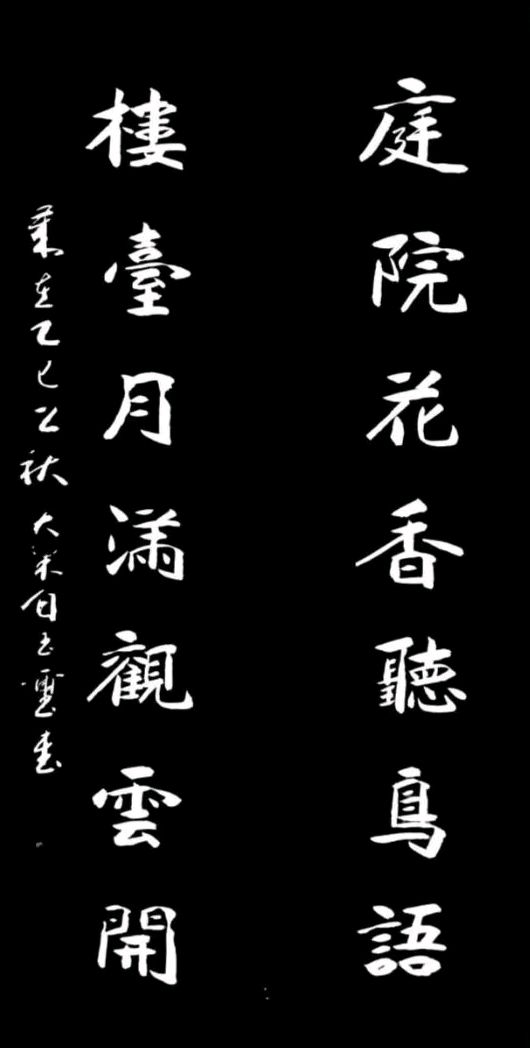 庭院花香聽鳥語
樓臺月滿觀雲開
歲在乙巳之秋大梁白玉璽書